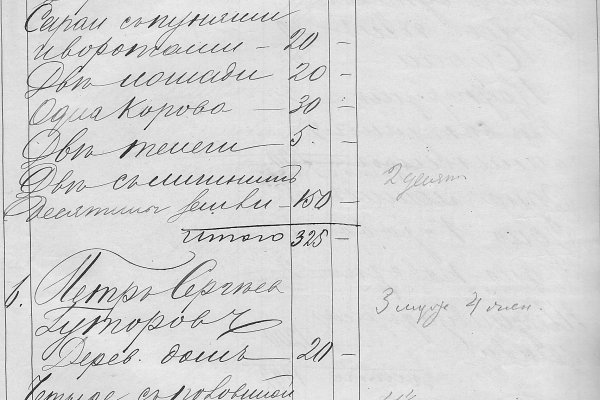 Сараи съ пунями
и воротами – 20 –
Двѣ лошади 20 –
Одна корова – 30 –
Двѣ телеги 5. –
Двѣ съ
Десятины земли – 150 – 2 десят
Итого 325 –
6. Петръ Сергѣев
Гуторовъ 3 муж 4 жен.
Дерев. домъ – 20 –